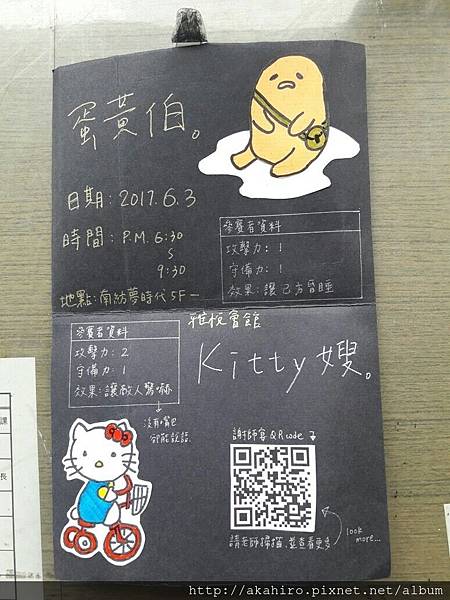 蛋黃伯。
日期：2017.6.3
時間：P.M. 6:30
S
9:30
地點：南紡夢時代 5F—
雅悅會館
參賽者資料
攻擊力：1
守備力：1
效果：讓己方昏睡
參賽者資料
攻擊力：2
守備力：1
效果：讓敵人驚嚇
沒有嘴巴
卻能說話
Kitty 嫂。
謝師宴 QRcode
請老師掃描 並查看更多
look
more...
http://akahiro.pixnet.net/album